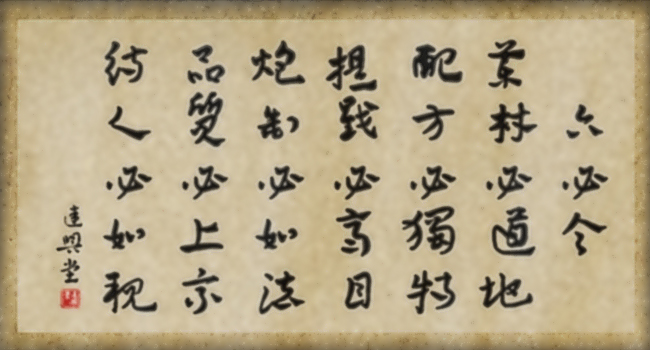 六必令
藥材必道地
配方必獨特
戥必目
炮制必如法
品質必上
待人必如親
達興堂